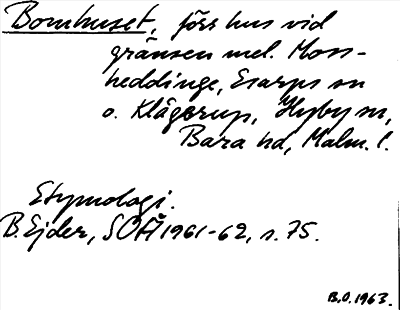 Bomhuset, förr hus vid
gränsen mel. Moss-
heddinge, Esarps sn
o. Klågerup, Hyby sn,
Bara hd, Malm. l.
Etymologi.
B. Ejder, SOÅ 1961-62, s. 75.
B.O. 1963.